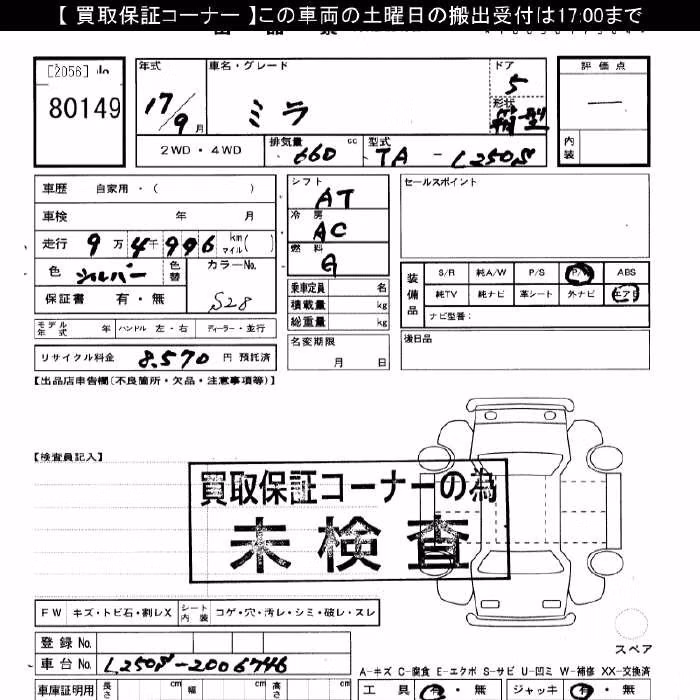 【 買取保証コーナー 】この車両の土曜日の搬出受付は17:00まで
[2056]
80149
年式
17/9月
車名・グレード
ミラ
ドア
5
形状
箱型
評価点
―
内装
2WD・4WD
排気量 660 cc
型式 TA - L250S
車歴 自家用・( )
車検 年 月
走行 9万4千996 km マイル( )
色 シルバー 色替
カラーNo. S28
保証書 有・無
モデル年式 年 ハンドル 左・右 ディーラー・並行
リサイクル料金 8,570 円 預託済
シフト AT
冷房 AC
燃料 G
乗車定員 名
積載量 kg
総重量 kg
名変期限
月 日
セールスポイント
装備品
S/R 純A/W P/S P/W ABS
純TV 純ナビ 革シート 外ナビ エアB
ナビ型番:
後日品
【出品店申告欄(不良箇所・欠品・注意事項等)】
【検査員記入】
買取保証コーナーの為
未検査
FW キズ・トビ石・割レX シート内装 コゲ・穴・汚レ・シミ・破レ・スレ
登録 No.
車台 No. L250S-2006746
スペア
A-キズ C-腐食 E-エクボ S-サビ U-凹ミ W-補修 XX-交換済
車庫証明用 長さ cm 幅 cm 高さ cm
工具 有・無 ジャッキ 有・無